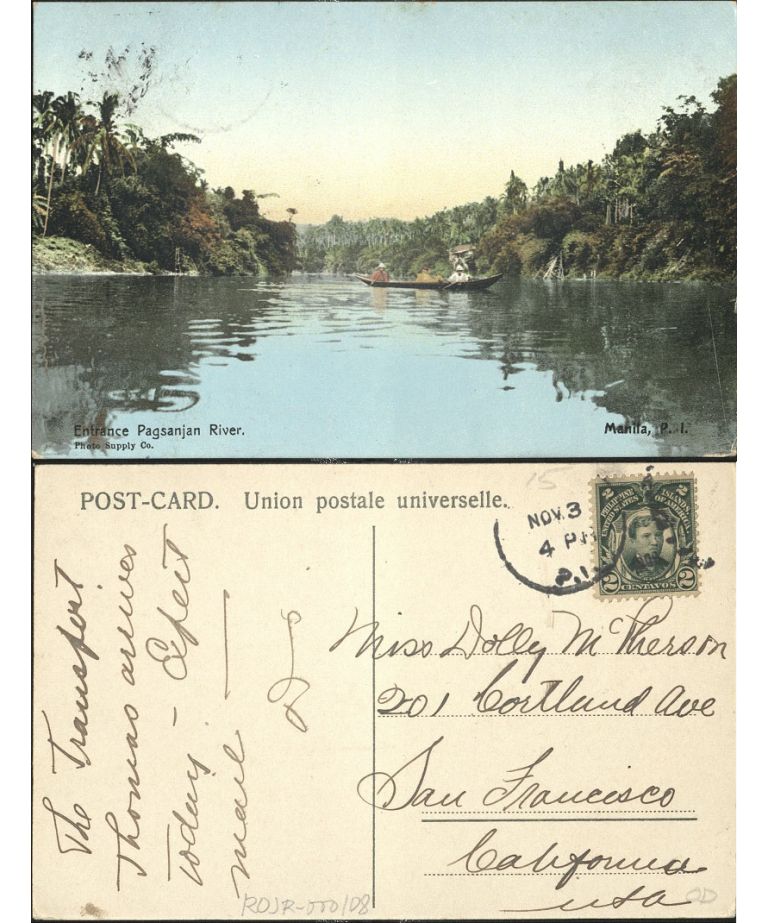 Entrance Pagsanjan River.
Photo Supply Co.
Manila, P. I.
POST-CARD. Union postale universelle.
15
NOV. 3
4 PM
P.I.
PHILIPPINE ISLANDS
UNITED STATES OF AMERICA
2 CENTAVOS 2
The Transport
Thomas arrives
today. – Expect
mail —
Miss Dolly McPherson
201 Cortland Ave
San Francisco
California
USA
ROJR-000108
OD